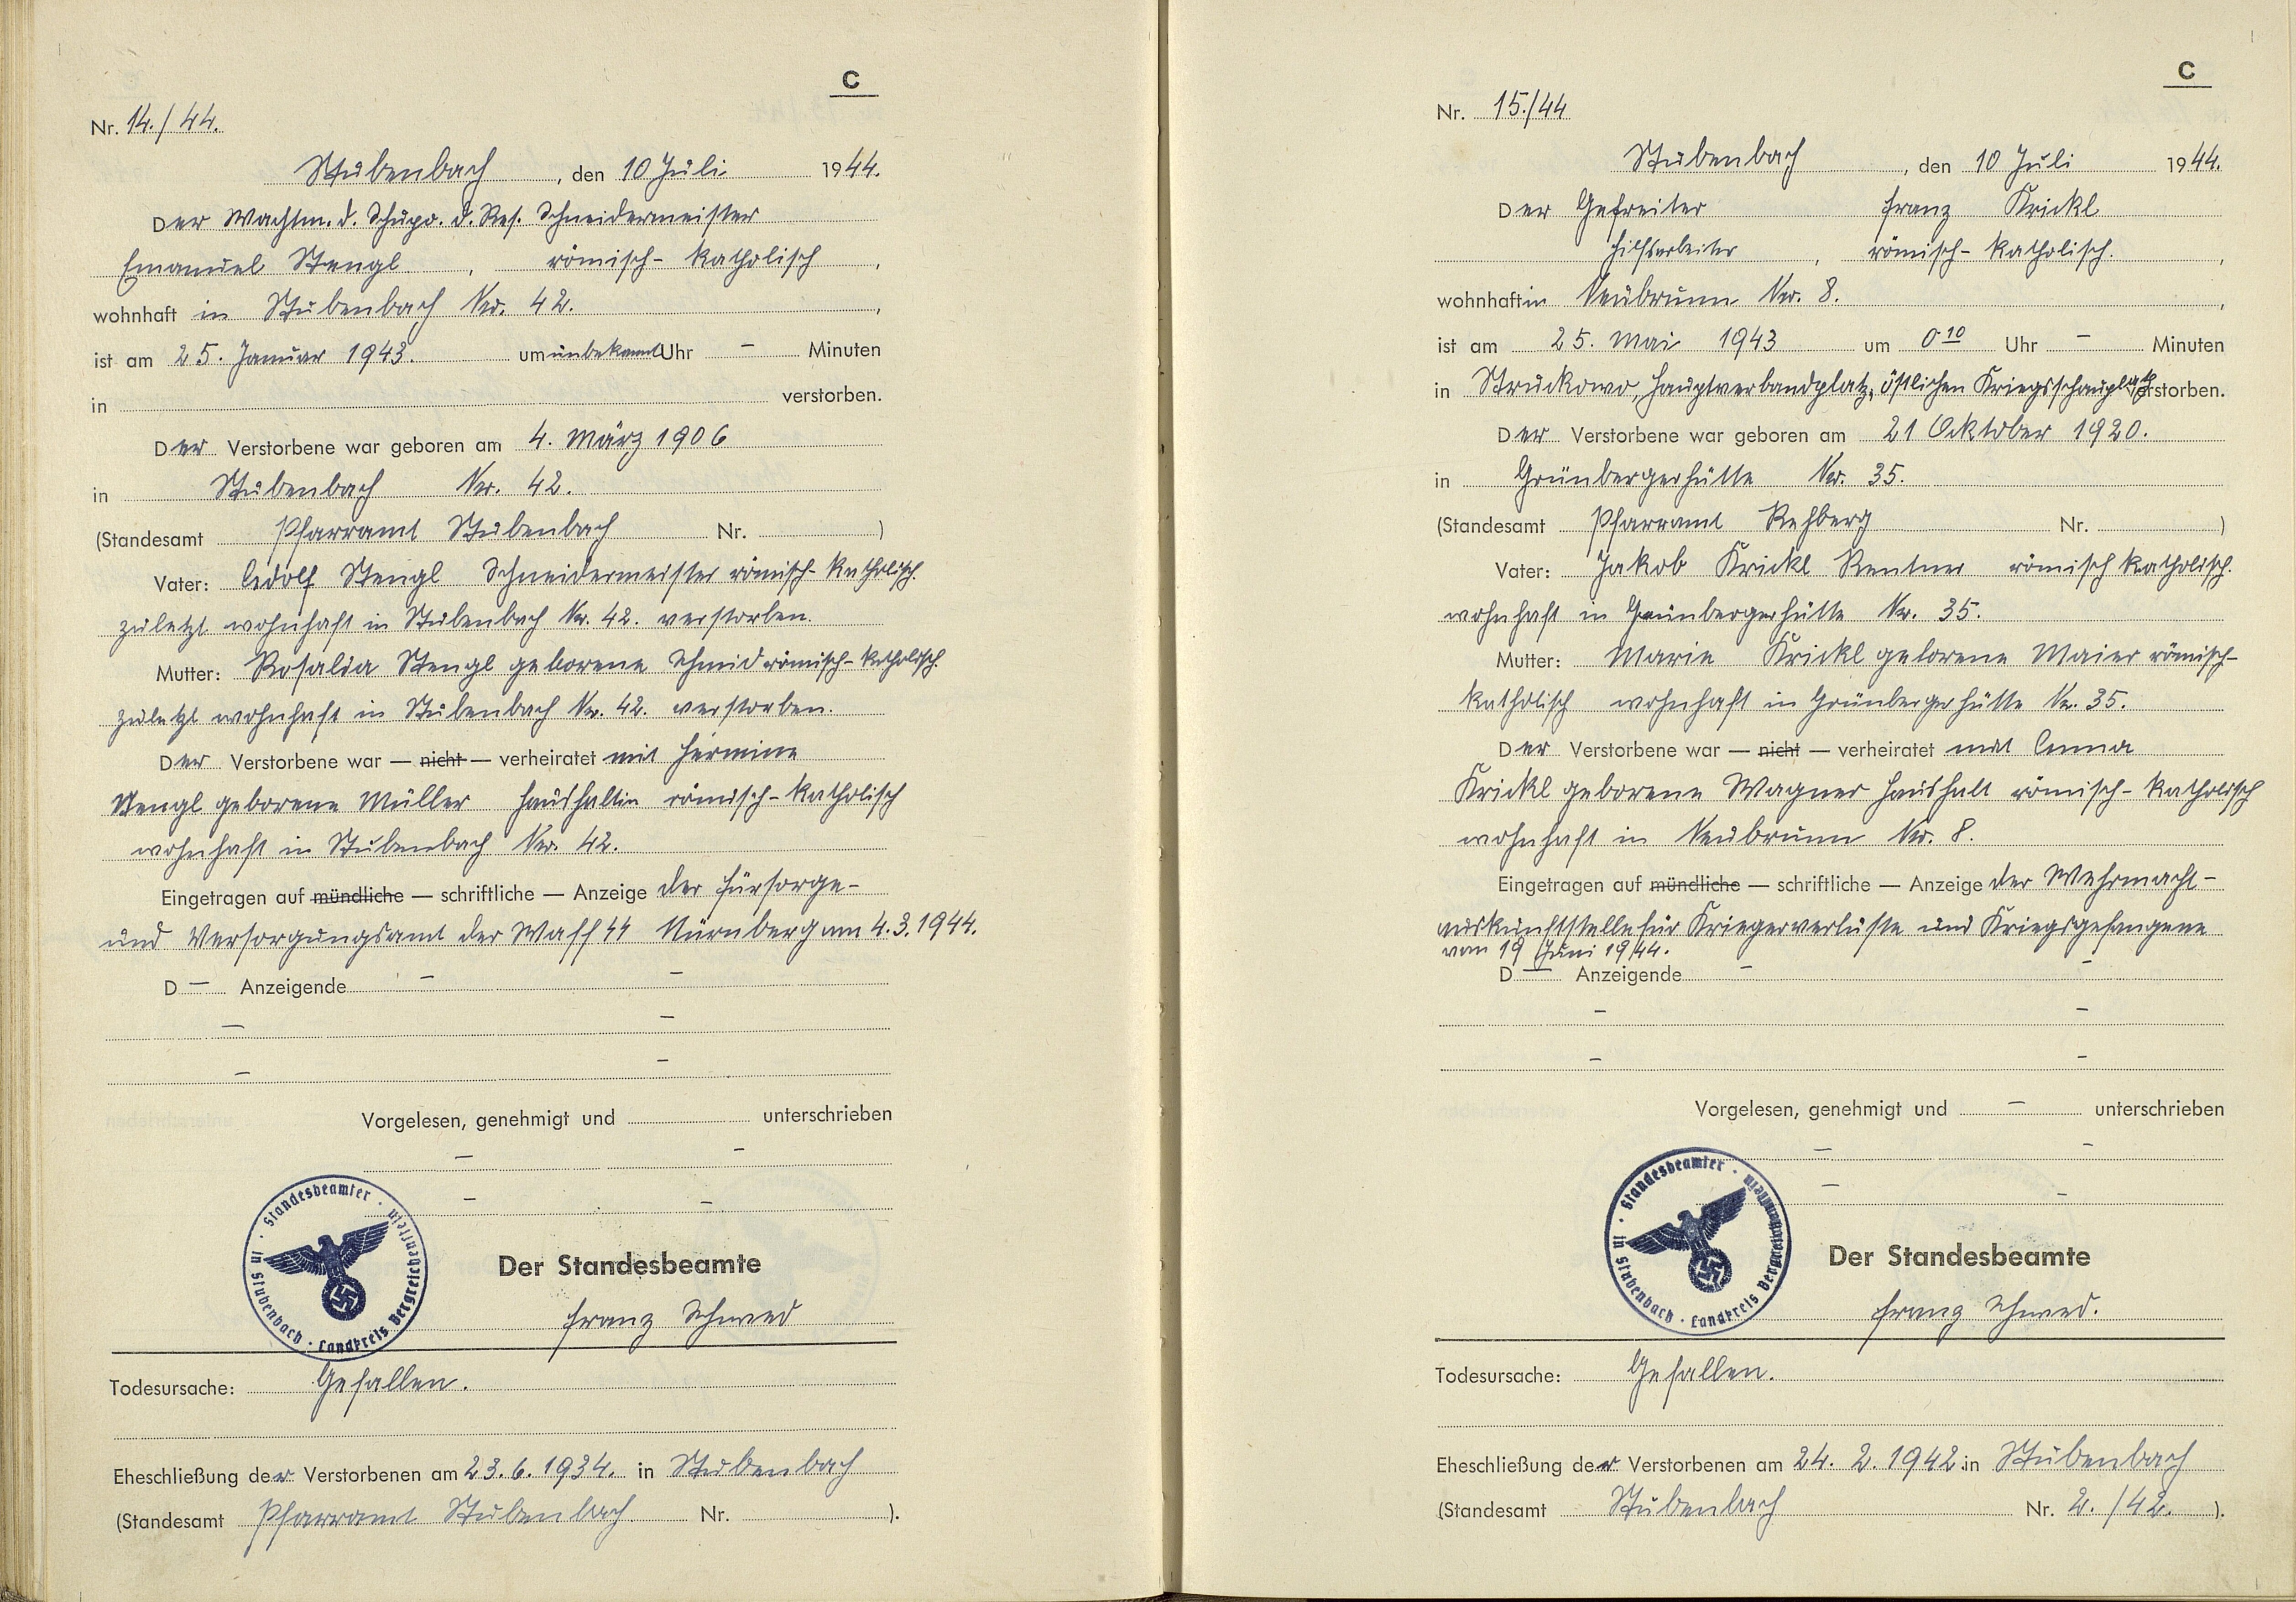 C
Nr. 14./44.
Stubenbach, den 10 Juli 1944.
Der Wachtm. d. Schupo. d. Res. Schneidermeister
Emanuel Stengl, römisch-katholisch,
wohnhaft in Stubenbach Nr. 42.,
ist am 25. Januar 1943. um unbekannt Uhr – Minuten
in verstorben.
Der Verstorbene war geboren am 4. März 1906
in Stubenbach Nr. 42.
(Standesamt Pfarramt Stubenbach Nr. )
Vater: Adolf Stengl Schneidermeister römisch-katholisch.
zuletzt wohnhaft in Stubenbach Nr. 42. verstorben.
Mutter: Rosalia Stengl geborene Schmid römisch-katholisch.
zuletzt wohnhaft in Stubenbach Nr. 42. verstorben.
Der Verstorbene war — nicht — verheiratet mit Hermine
Stengl geborene Müller Haushaltin römisch-katholisch
wohnhaft in Stubenbach Nr. 42.
Eingetragen auf mündliche — schriftliche — Anzeige der Fürsorge-
und Versorgungsamt der Waff SS Nürnberg am 4.3.1944.
D – Anzeigende – –
– –
– –
Vorgelesen, genehmigt und unterschrieben
– –
– –
Standesbeamter · in Stubenbach · Landkreis Bergreichenstein ·
Der Standesbeamte
Franz Schmed
Todesursache: Gefallen.
Eheschließung der Verstorbenen am 23.6.1934. in Stubenbach
(Standesamt Pfarramt Stubenbach Nr. ).
C
Nr. 15./44
Stubenbach, den 10 Juli 1944.
Der Gefreiter Franz Krickl
Hilfsarbeiter, römisch-katholisch.,
wohnhaft in Neubrunn Nr. 8.,
ist am 25. Mai 1943 um 0¹⁰ Uhr – Minuten
in Struckowo, Hauptverbandplatz, östlichen Kriegsschauplatz verstorben.
Der Verstorbene war geboren am 21 Ocktober 1920.
in Grünbergerhütte Nr. 35.
(Standesamt Pfarramt Rehberg Nr. )
Vater: Jakob Krickl Rentner römisch katholisch.
wohnhaft in Grünbergerhütte Nr. 35.
Mutter: Marie Krickl geborene Maier römisch-
katholisch wohnhaft in Grünbergerhütte Nr. 35.
Der Verstorbene war — nicht — verheiratet mit Anna
Krickl geborene Wagner Haushalt römisch-katholisch
wohnhaft in Neubrunn Nr. 8.
Eingetragen auf mündliche — schriftliche — Anzeige der Wehrmacht-
auskunftstelle für Kriegerverluste und Kriegsgefangene
vom 19 Juni 1944.
D – Anzeigende – –
– –
– –
Vorgelesen, genehmigt und – unterschrieben
– –
– –
Standesbeamter · in Stubenbach · Landkreis Bergreichenstein ·
Der Standesbeamte
Franz Schmed.
Todesursache: Gefallen.
Eheschließung der Verstorbenen am 24. 2. 1942. in Stubenbach
(Standesamt Stubenbach Nr. 2./42. ).